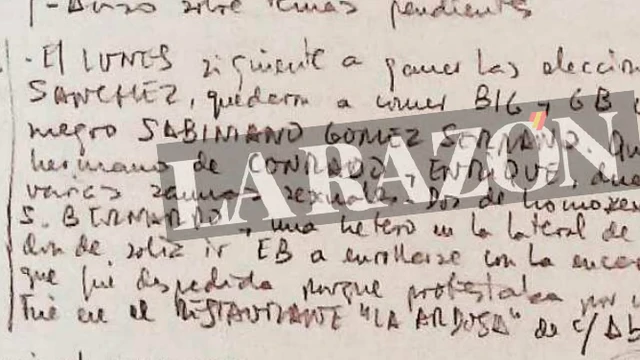 - Aviso sobre temas pendientes
- El LUNES siguiente a ganar las eleccion
SANCHEZ, quedaron a comer BIG y GB
negro SABINIANO GOMEZ SERRANO. Qu
hermano de CONRADO y ENRIQUE, due
varias saunas sexuales. Dos de homosex
S. BERNARDO, y una hetero en la lateral de
donde solía ir EB a enrollarse con la encar
que fue despedida porque protestaba por
Fue en el RESTAURANTE "LA ARDOSA" de c/
LA RAZÓN